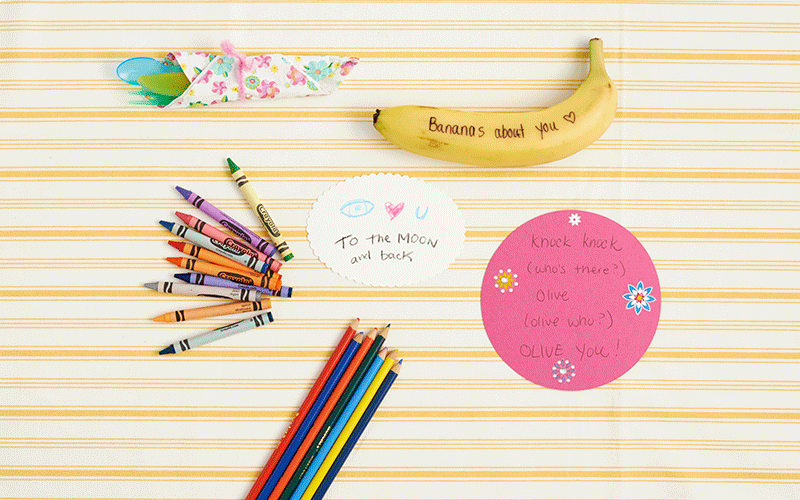 Bananas about you ♡
U
To the MOON
and back
Knock knock
(who's there?)
Olive
(olive who?)
OLIVE YOU!
Crayola
Crayola
Crayola
Crayola